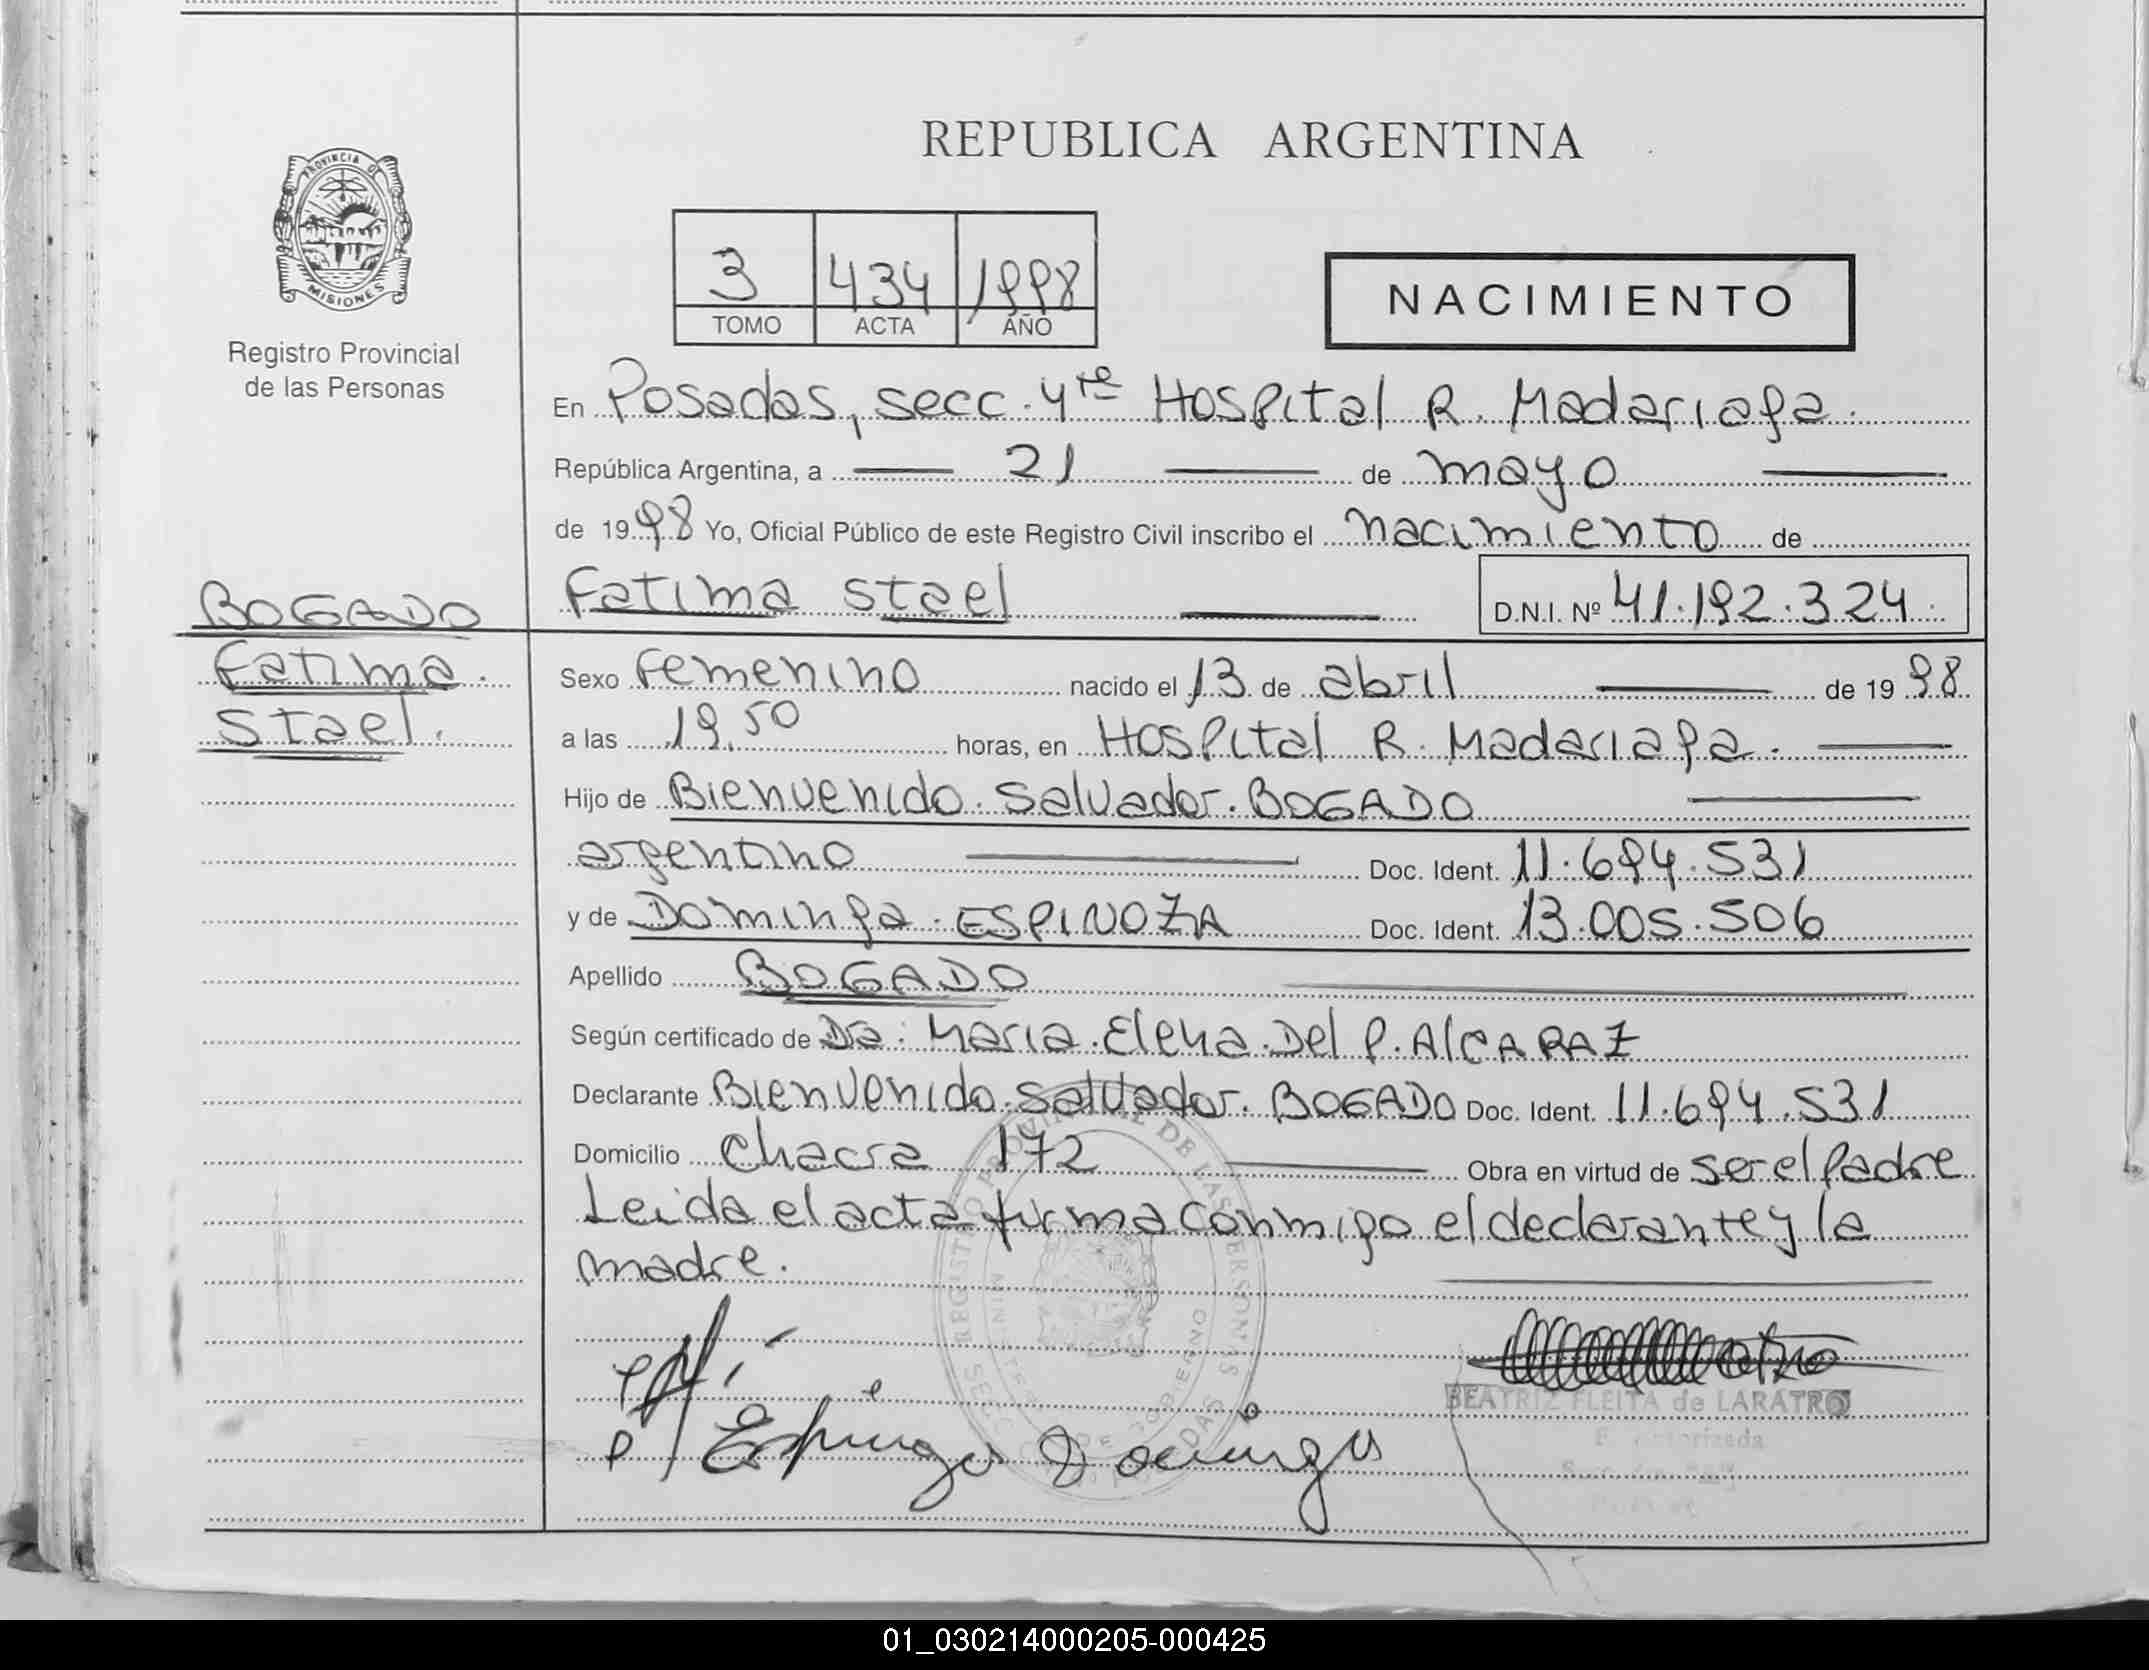 REPUBLICA ARGENTINA
PROVINCIA DE
MISIONES
Registro Provincial
de las Personas
3 434 1998
TOMO ACTA AÑO
NACIMIENTO
En Posadas, secc. 4ta Hospital R. Madariaga.
República Argentina, a 21 de mayo
de 1998 Yo, Oficial Público de este Registro Civil inscribo el nacimiento de
BOGADO
Fatima Stael
D.N.I. Nº 41.192.324
Fatima
Stael.
Sexo Femenino nacido el 13 de abril de 1998
a las 19,50 horas, en Hospital R. Madariaga.
Hijo de Bienvenido Salvador BOGADO
argentino Doc. Ident. 11.694.531
y de Dominga ESPINOZA Doc. Ident. 13.005.506
Apellido BOGADO
Según certificado de Dra. Maria Elena Del P. AlCARAZ
Declarante Bienvenido Salvador BOGADO Doc. Ident. 11.694.531
Domicilio Chacra 172 Obra en virtud de ser el Padre
Leida el acta firma conmigo el declarante y la
madre.
BEATRIZ FLEITA de LARATRO
01_030214000205-000425